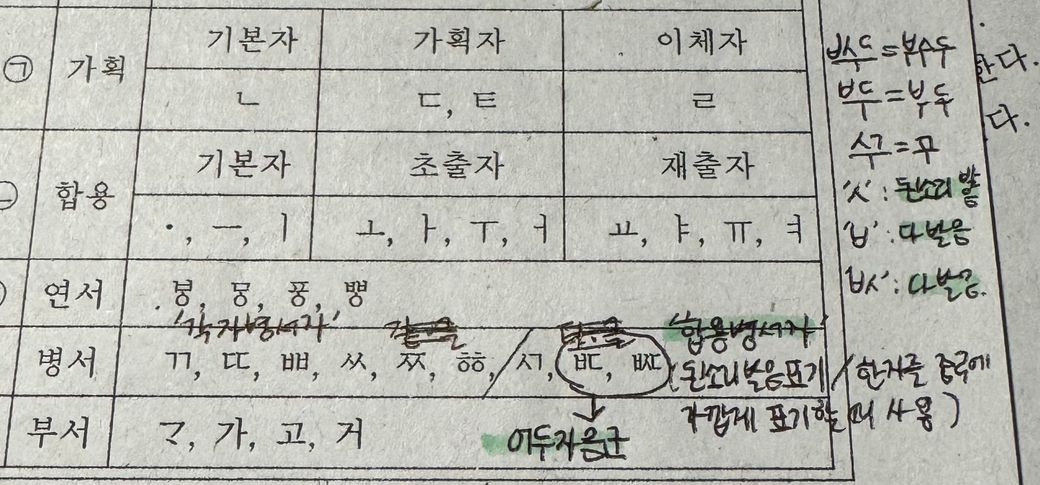 기본자 가획자 이체자
㉠ 가획
ㄴ ㄷ, ㅌ ㄹ
기본자 초출자 재출자
합용
ㆍ, ㅡ, ㅣ ㅗ, ㅏ, ㅜ, ㅓ ㅛ, ㅑ, ㅠ, ㅕ
연서 ㅸ, ㅱ, ㆄ, ㅹ
'각자병서자' '합용병서자'
병서 ㄲ, ㄸ, ㅃ, ㅆ, ㅉ, ㆅ, / ㅺ, ㅳ, ㅴ
(된소리 발음 표기 / 한자를
가깝게 표기할 때 사용)
부서 가, 고, 거
어두자음군
한다.
다.
'ㅅ' : 된소리 발음
'ㅂ' : 다 발음
'ㅄ' : 다 발음.